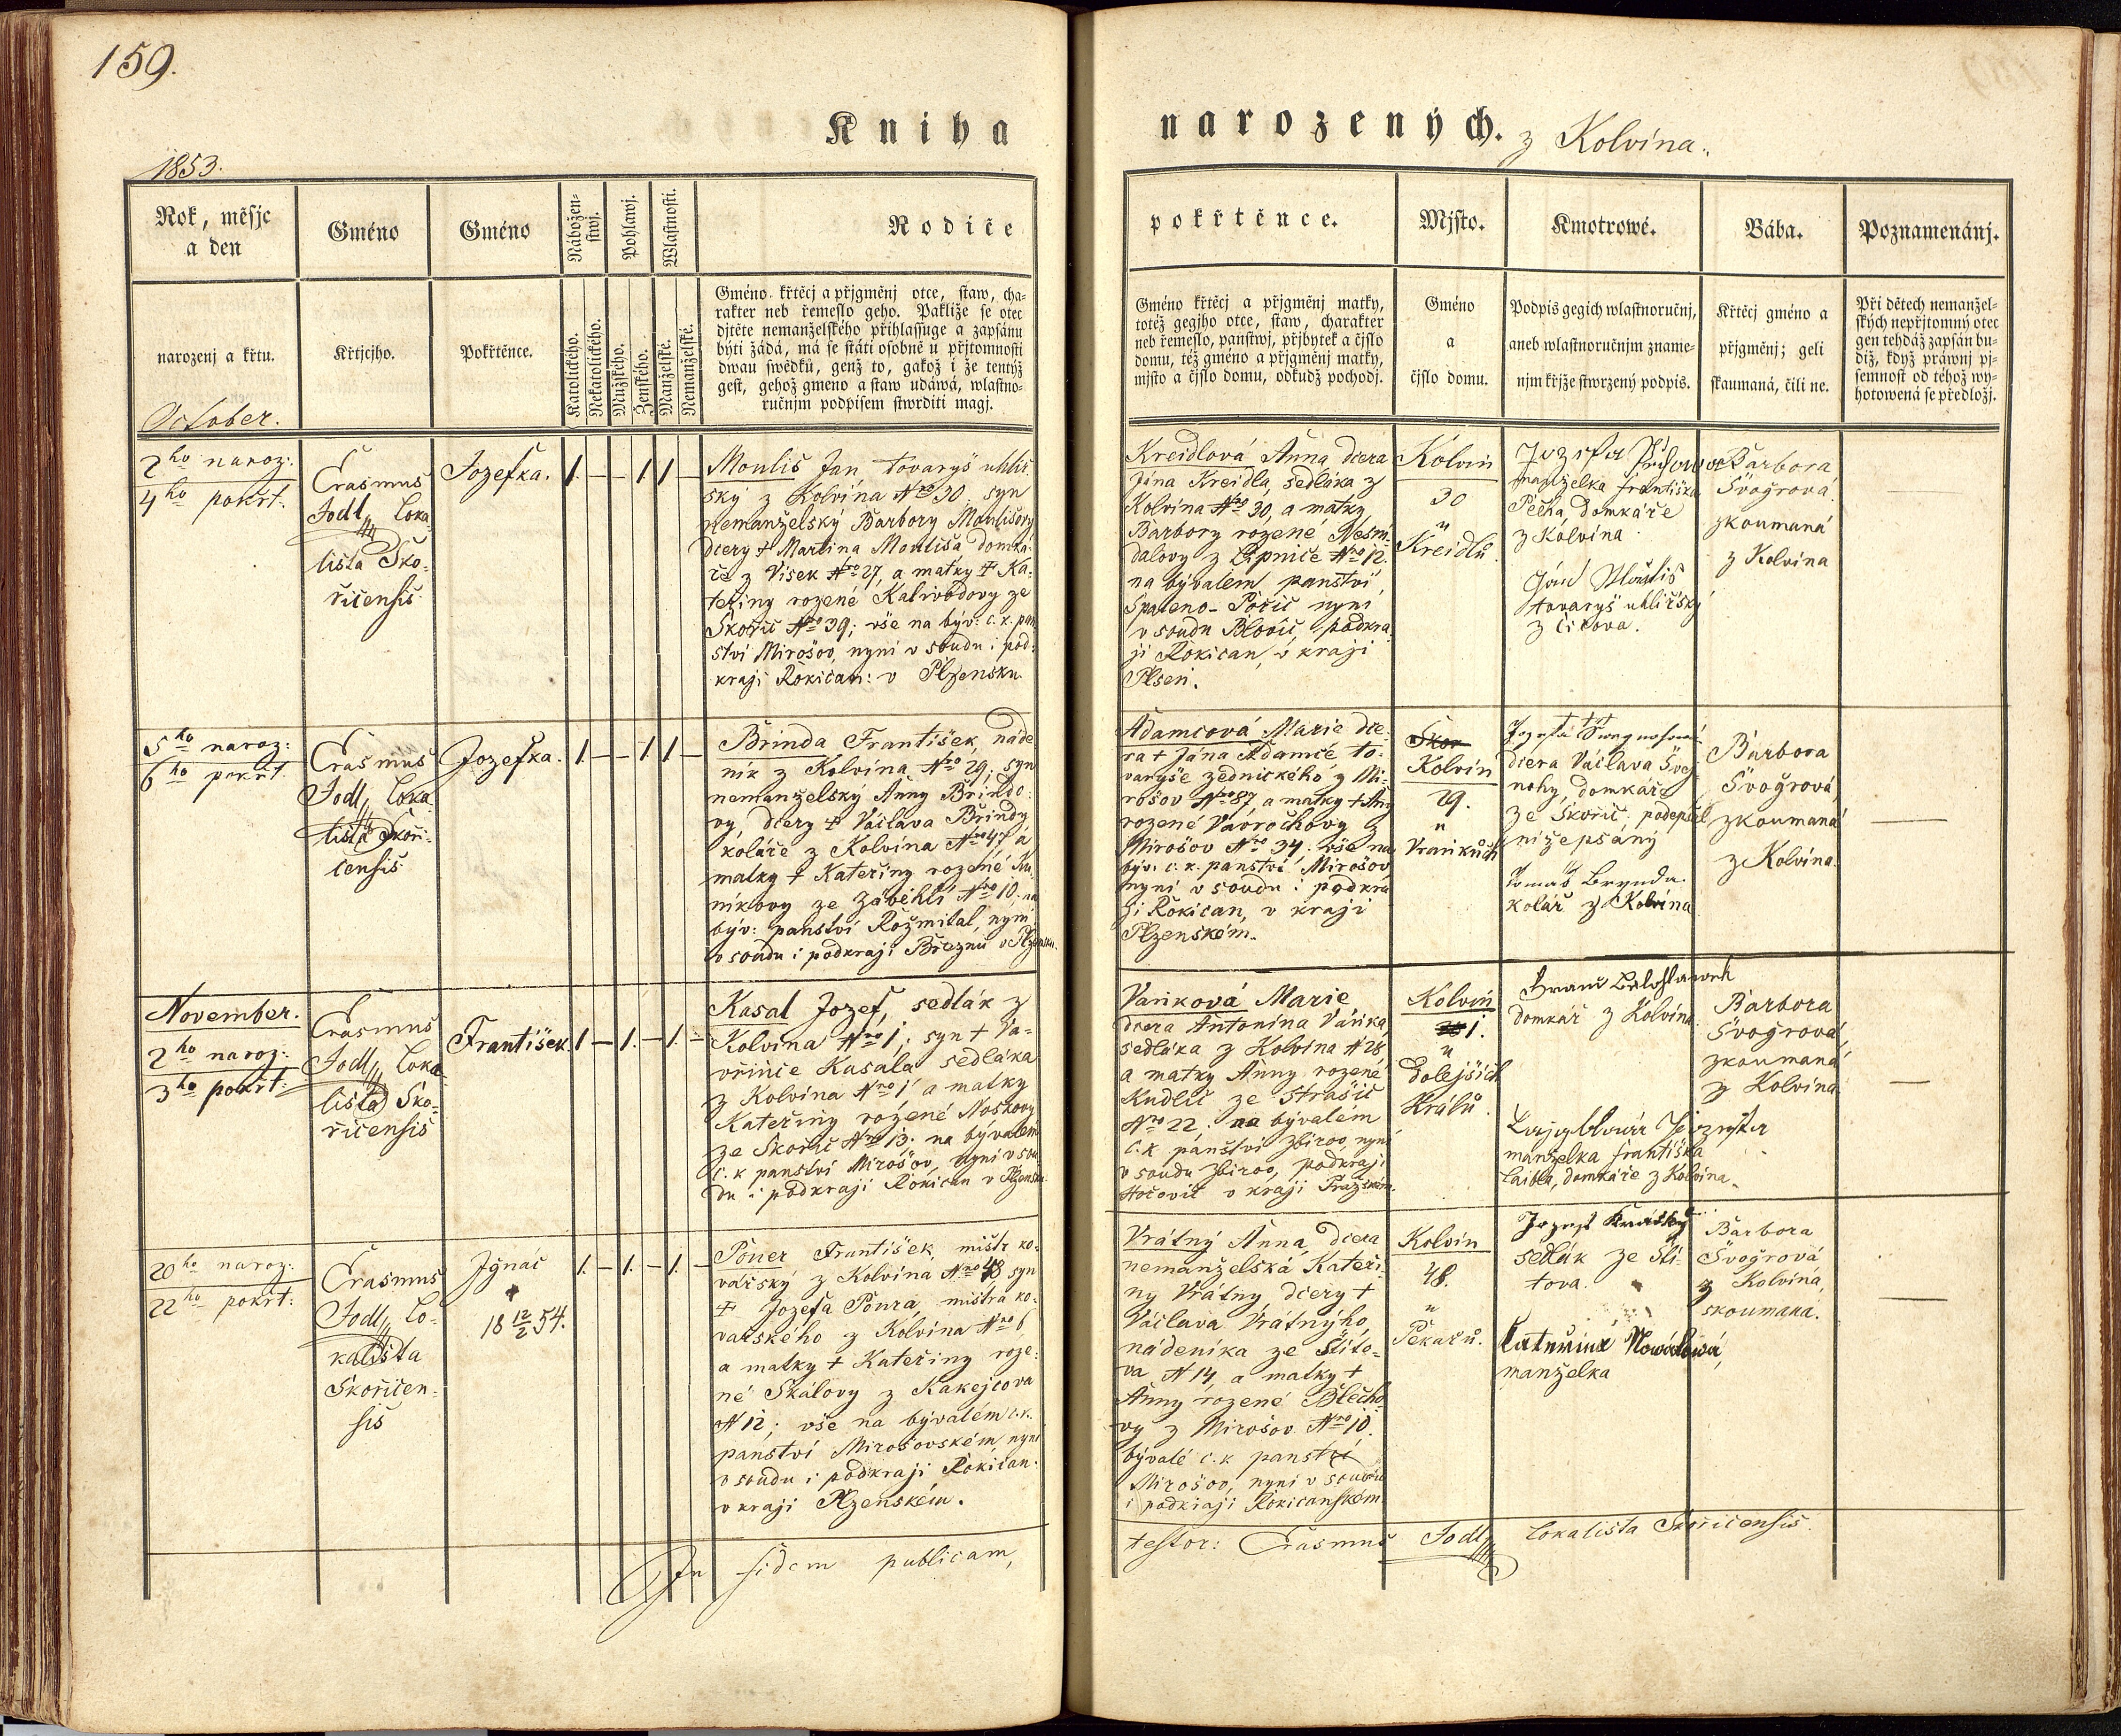 159.
Kniha
narozených.
z Kolvína.
1853.
Rok, měsjc
a den
Gméno
Gméno
Nábožen-
stwj.
Pohlawj.
Wlastnosti.
Rodiče
pokřtěnce.
Mjsto.
Kmotrowé.
Bába.
Poznamenánj.
narozenj a křtu.
Křtjcjho.
Pokřtěnce.
Katolického.
Nekatolického.
Mužského.
Ženského.
Manželské.
Nemanželské.
Gméno křtěcj a přjgměnj otce, staw, cha-
rakter neb řemeslo geho. Pakliže se otec
djtěte nemanželského přihlassuge a zapsánu
býti žádá, má se státi osobně u přjtomnosti
dwau swědků, genž to, gakož i že tentýž
gest, gehož gmeno a staw udáwá, wlastno-
ručnjm podpisem stwrditi magj.
Gméno křtěcj a přjgměnj matky,
totéž gegjho otce, staw, charakter
neb řemeslo, panstwj, přjbytek a čjslo
domu, též gméno a přjgměnj matky,
mjsto a čjslo domu, odkudž pochodj.
Gméno
a
čjslo domu.
Podpis gegich wlastnoručnj,
aneb wlastnoručnjm zname-
njm křjže stwrzený podpis.
Křtěcj gméno a
přjgměnj; geli
skaumaná, čili ne.
Při dětech nemanžel-
ských nepřjtomný otec
gen tehdáž zapsán bu-
diž, když práwnj pj-
semnost od téhož wy-
hotowená se předložj.
October.
2ho naroz:
4ho pokřt.
Erasmus
Jodl, Loka-
lista Sko-
řicensis
Jozefka.
1. — — 1 1 —
Moulis Jan tovaryš uhlíř-
ský z Kolvína Nro 30. syn
nemanželský Barbory Moulisovy
dcery † Martina Moulisa domká-
ře z Vísek Nro 27, a matky † Ka-
teřiny rozené Kalivodovy ze
Skořic Nro 39; vše na býv: c. k. pan-
ství Mirošov, nyní v soudu i pod-
kraji Rokican: v Plzensku.
Kreidlová Anna dcera
Jána Kreidla, sedláka z
Kolvína Nro 30, a matky
Barbory rozené Nesmí-
dalovy z Lipnice Nro 12.
na bývalém panství
Spáleno-Poříč nyní
v soudu Blovic, podkra-
ji Rokican, v kraji
Plseň.
Kolvín
30
u
Kreidlů.
manželka Františka
Pěcha domkáře
z Kolvína
tovaryš uhlířský
Barbora
Švogrává
zkoumaná
z Kolvína
5ho naroz:
6ho pokřt.
Erasmus
Jodl, Loka-
lista Skoři-
censis
Jozefka.
1. — — 1 1 —
Brinda František, náde-
ník z Kolvína Nro 29; syn
nemanželský Anny Brindo-
vy, dcery † Václava Brindy
koláře z Kolvína Nro 47 a
matky † Kateřiny rozené Ku-
níkovy ze Záběhlí Nro 10; na
býv: panství Rožmitál, nyní
v soudu i podkraji Březnu v Plzensku.
Adamcová Marie dce-
ra † Jána Adamce to-
varyše zednického z Mi-
rošov Nro 87, a matky † Any
rozené Vavrochovy z
Mirošov Nro 34. vše na
býv: c. k. panství Mirošov,
nyní v soudu i podkra-
ji Rokican, v kraji
Plzenském.
Skor
Kolvín
29.
u
Vaňkůch
† † †
dcera Václava Švej-
nohy, domkáře
ze Skořic podepsel
níže psány
Tomáš Brynda
kolář z Kolvína
Barbora
Švogrová,
zkoumaná
z Kolvína.
November.
2ho naroz:
3ho pokřt:
Erasmus
Jodl, Loka-
lista Sko-
řicensis
František.
1 — 1. — 1. —
Kasal Jozef, sedlák z
Kolvína Nro 1; syn † Va-
vřince Kasala sedláka
z Kolvína Nro 1 a matky
Kateřiny rozené Noskovy
ze Skořic Nro 13. na bývalém
c. k panství Mirošov, nyní v sou-
du i podkraji Rokican v Plzensku.
Vaňková Marie
dcera Antonína Váňka,
sedláka z Kolvína N 28
a matky Anny rozené
Kudlic ze Strašic
Nro 22. na bývalém
c. k panství Zbirov, nyní
v soudu Zbirov, podkraji
Hořovic v kraji Pražském.
Kolvín
1.
u
Dolejších
Králů.
domkář z Kolvína
manželka Františka
Laibla, domkáře z Kolvína.
Barbora
Švogrová,
zkoumaná
z Kolvína
20ho naroz:
22ho pokřt:
Erasmus
Jodl, Lo-
kalista
Skořicen-
sis
Ignac
†
18 12/2 54.
1. — 1. — 1. —
Poner František, mistr ko-
vařský z Kolvína Nro 48 syn
† Jozefa Ponra, mistra ko-
vařského z Kolvína Nro 6
a matky † Kateřiny roze-
né Skálovy z Kakejcova
N 12; vše na bývalém c. k.
panství Mirošovském, nyní
v soudu i podkraji Rokican-
v kraji Plzenském.
Vrátný Anna, dcera
nemanželská Kateři-
ny Vrátny dcery †
Václava Vrátnýho,
nádeníka ze Štíto-
va N 14, a matky †
Anny rozené Blecho-
vy z Mirošov Nro 10.
bývalé c. k panství
Mirošov, nyní v soudu
i podkraji Rokicanském.
Kolvín
48.
u
Pekařů.
Jozef Krátký
sedlák ze Ští-
tova.
Kateřina Nowáková,
manželka
Barbora
Švogrová
z Kolvína,
skoumaná.
In fidem publicam,
testor: Erasmus Jodl, Lokalista Skořicensis.